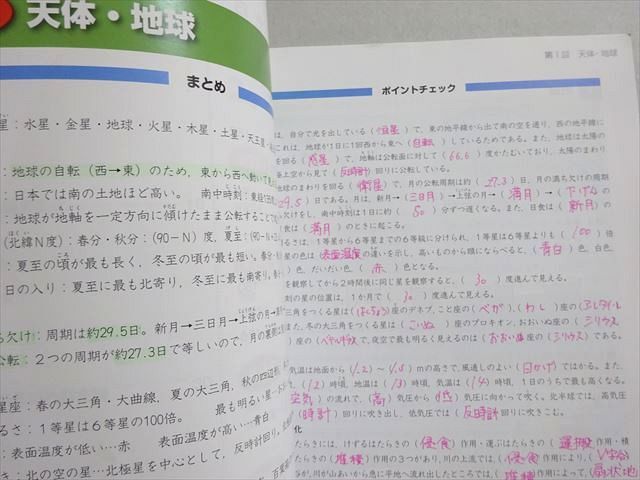 天体・地球
まとめ
星：水星・金星・地球・火星・木星・土星・天王星
：地球の自転（西→東）のため，東から西へ動いて見え
：日本では南の土地ほど高い。 南中時刻：東経135
：地球が地軸を一定方向に傾けたまま公転すること
（北緯N度）：春分・秋分：（90－N）度，夏至：（90－N＋
：夏至の頃が最も長く，冬至の頃が最も短い。春分・
日の入り：夏至に最も北寄り，冬至に最も南寄り。春
欠け：周期は約29.5日。新月→三日月→上弦の月→
公転：２つの周期が約27.3日で等しいので，月の裏側は
星座：春の大三角・大曲線，夏の大三角，秋の四辺形，
るさ：１等星は６等星の100倍。 最も明るい星
：表面温度が低い…赤 表面温度が高い…青白
き：北の空の星…北極星を中心として，反時計回り。
第1回 天体・地球
ポイントチェック
は，自分で光を出している（恒星）で，東の地平線から出て南の空を通り，西の地平線に
これは，地球が1日に1回西から東へ（自転）しているためである。また，地球は太陽の
を回る（惑星）で，地軸は公転面に対して（66.6）度かたむいており，太陽のまわり
極上空から見て（反時計）回りに公転している。
地球のまわりを回る（衛星）で，月の公転周期は約（27.3）日，月の満ち欠けの周期
29.5）日である。月は，新月→（三日月）→上弦の月→（満月）→（下げんの
欠けをし，南中時刻は1日に約（50）分ずつ遅くなる。また，日食は（新月）の
食は（満月）のときに起こる。
るさは，1等星から6等星までの6等級に分けられ，1等星は6等星よりも（100）倍
星の色は（表面温度）の違いを示し，高いものから順にならべると，（青白）色，白色，
）色，だいだい色，（赤）色となる。
を観察してから2時間後に同じ星を観察すると，（30）度進んで見える。
刻の星の位置は，1か月で（30）度進んで見える。
三角をつくる星は（はくちょう）座のデネブ，こと座の（ベガ），（わし）座の（アルタイル
）また，冬の大三角をつくる星は（こいぬ）座のプロキオン，おおいぬ座の（シリウス
座の（ベテルギウス）で，夜空で最も明るく見えるのは（おおいぬ座の（シリウス）である。
気温は地面から（1.2）〜（1.5）mの高さで，風通しのよい（日かげ）ではかる。また，
（12）時，地温は（13）時頃，気温は（14）時頃，1日のうちで最も高くなる。
（空気）の流れで，（高）気圧から（低）気圧に向かって吹く。北半球では，高気圧
（時計）回りに吹き出し，低気圧では（反時計）回りに吹きこむ。
化
たらきには，けずるはたらきの（侵食）作用・運ぶはたらきの（運搬）作用・積
たらきの（堆積）作用の3つがあり，川の上流では，（侵食）作用により，（V字谷）
が，川が山あいから急に平地へ流れ出したところでは，（堆積）作用によって，（扇状地